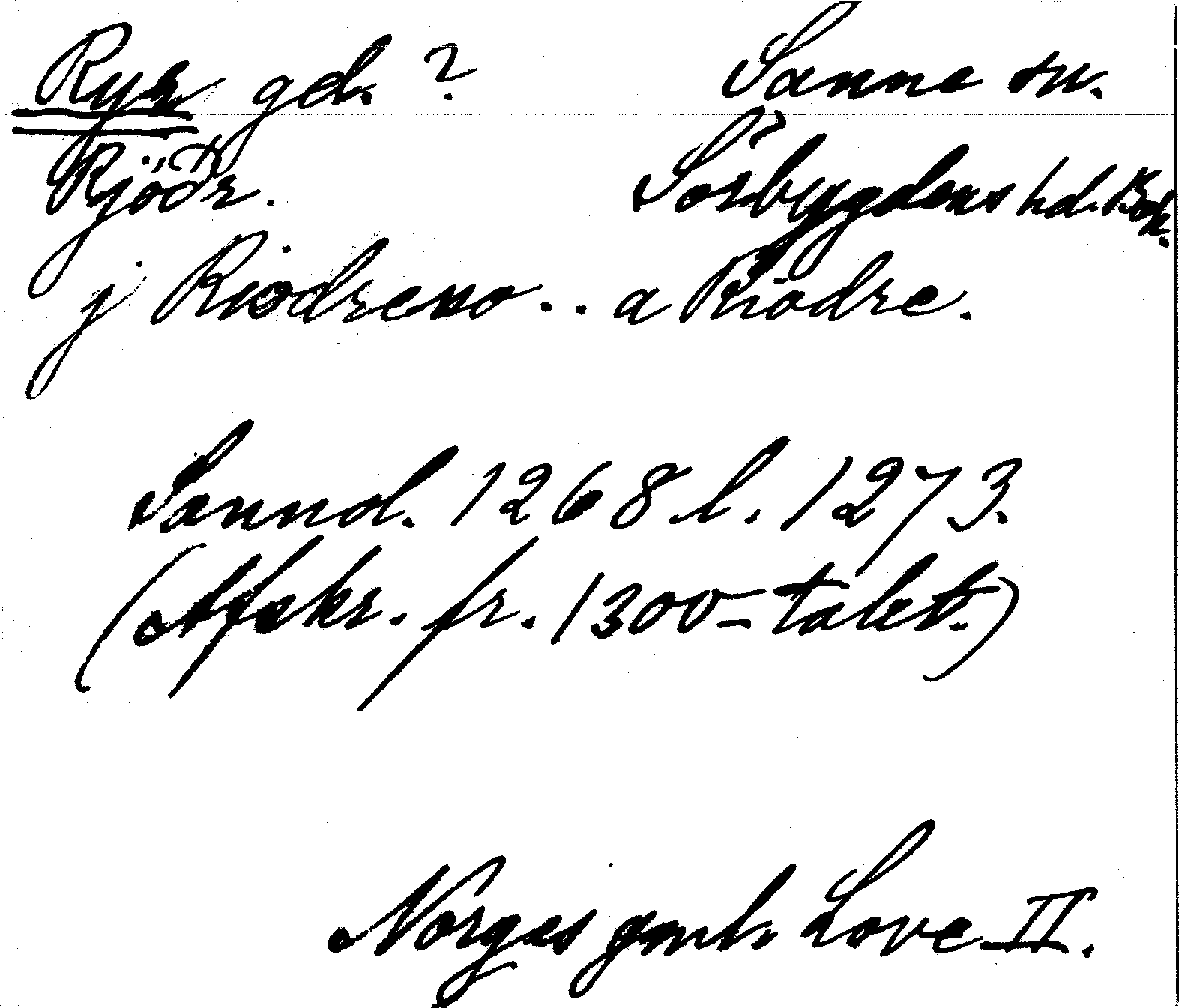 Ryr gd. ? Sanne sn.
Rjöðr. Sörbygdens hd. Boh.
j Riodreno . . a Riodre.
Sannol. 1268 l. 1273.
(Afskr. fr. 1300-talet.)
Norges gml. Love II.